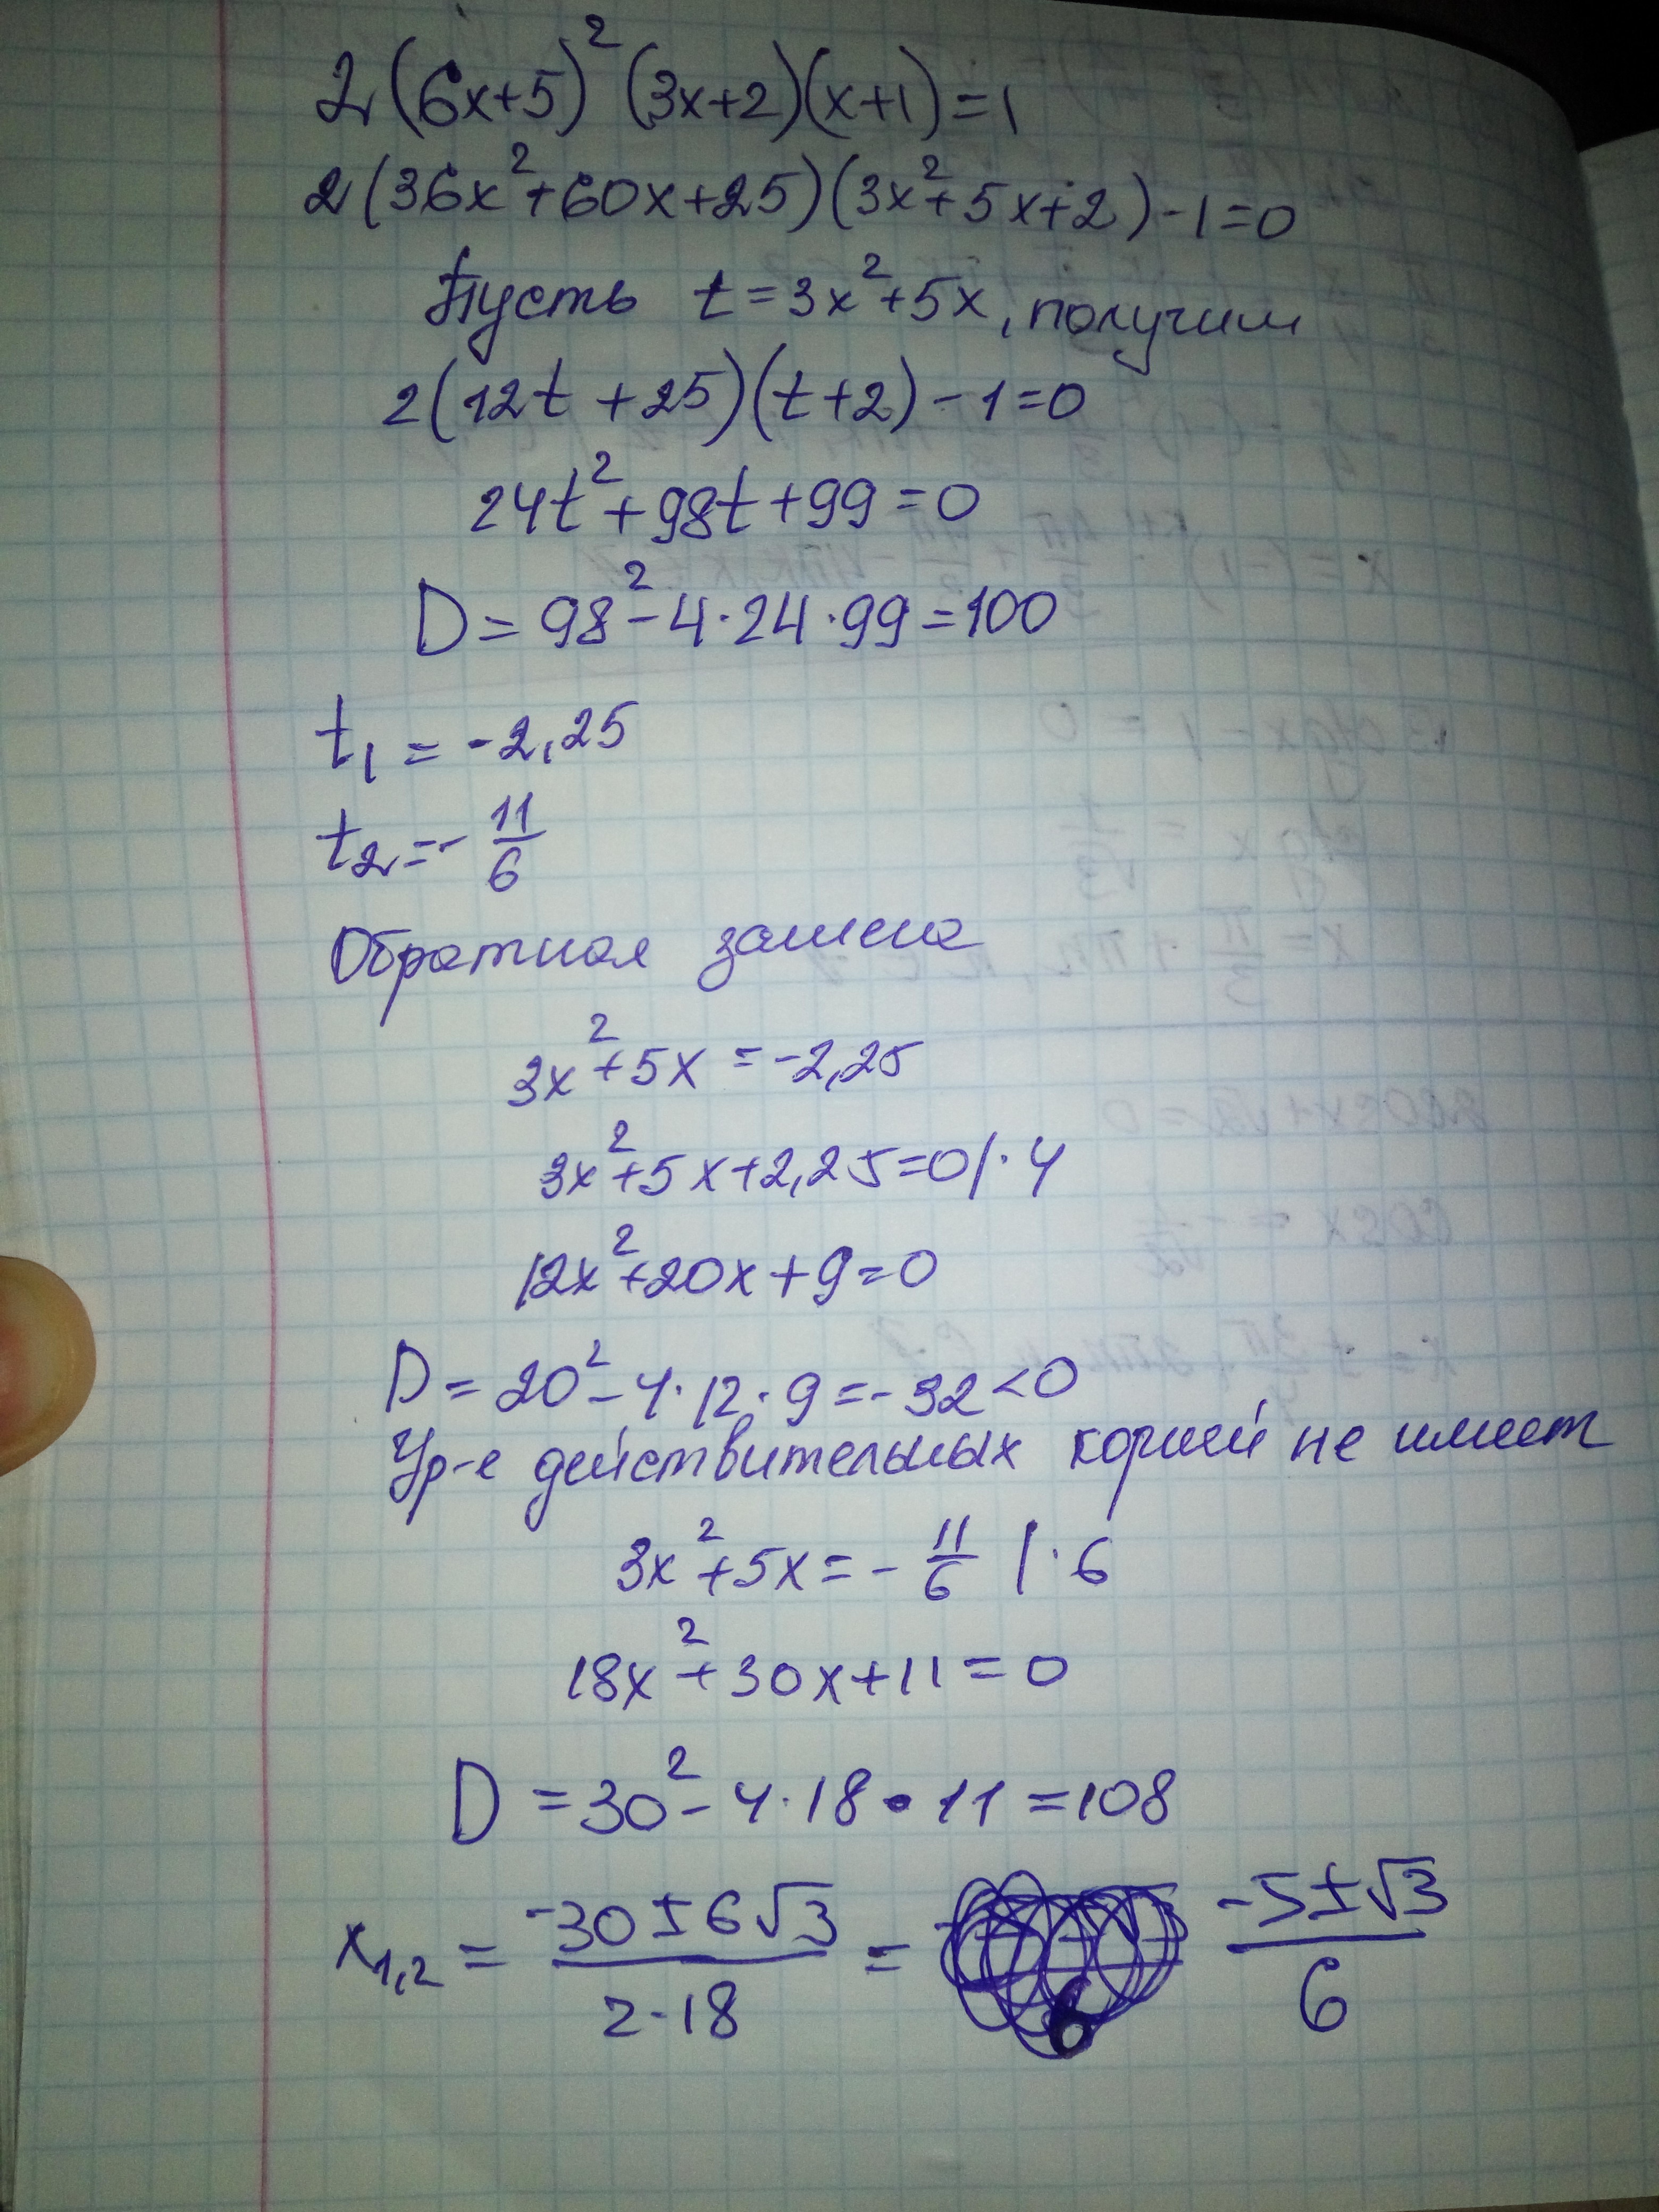 2(6x+5)²(3x+2)(x+1)=1
2(36x²+60x+25)(3x²+5x+2)-1=0
Пусть t=3x²+5x, получим
2(12t+25)(t+2)-1=0
24t²+98t+99=0
D=98²-4·24·99=100
t₁=-2,25
t₂=-11/6
Обратная замена
3x²+5x=-2,25
3x²+5x+2,25=0|·4
12x²+20x+9=0
D=20²-4·12·9=-32<0
Ур-е действительных корней не имеет
3x²+5x=-11/6 |·6
18x²+30x+11=0
D=30²-4·18·11=108
x₁,₂=(-30±6√3)/(2·18)=(-5±√3)/6